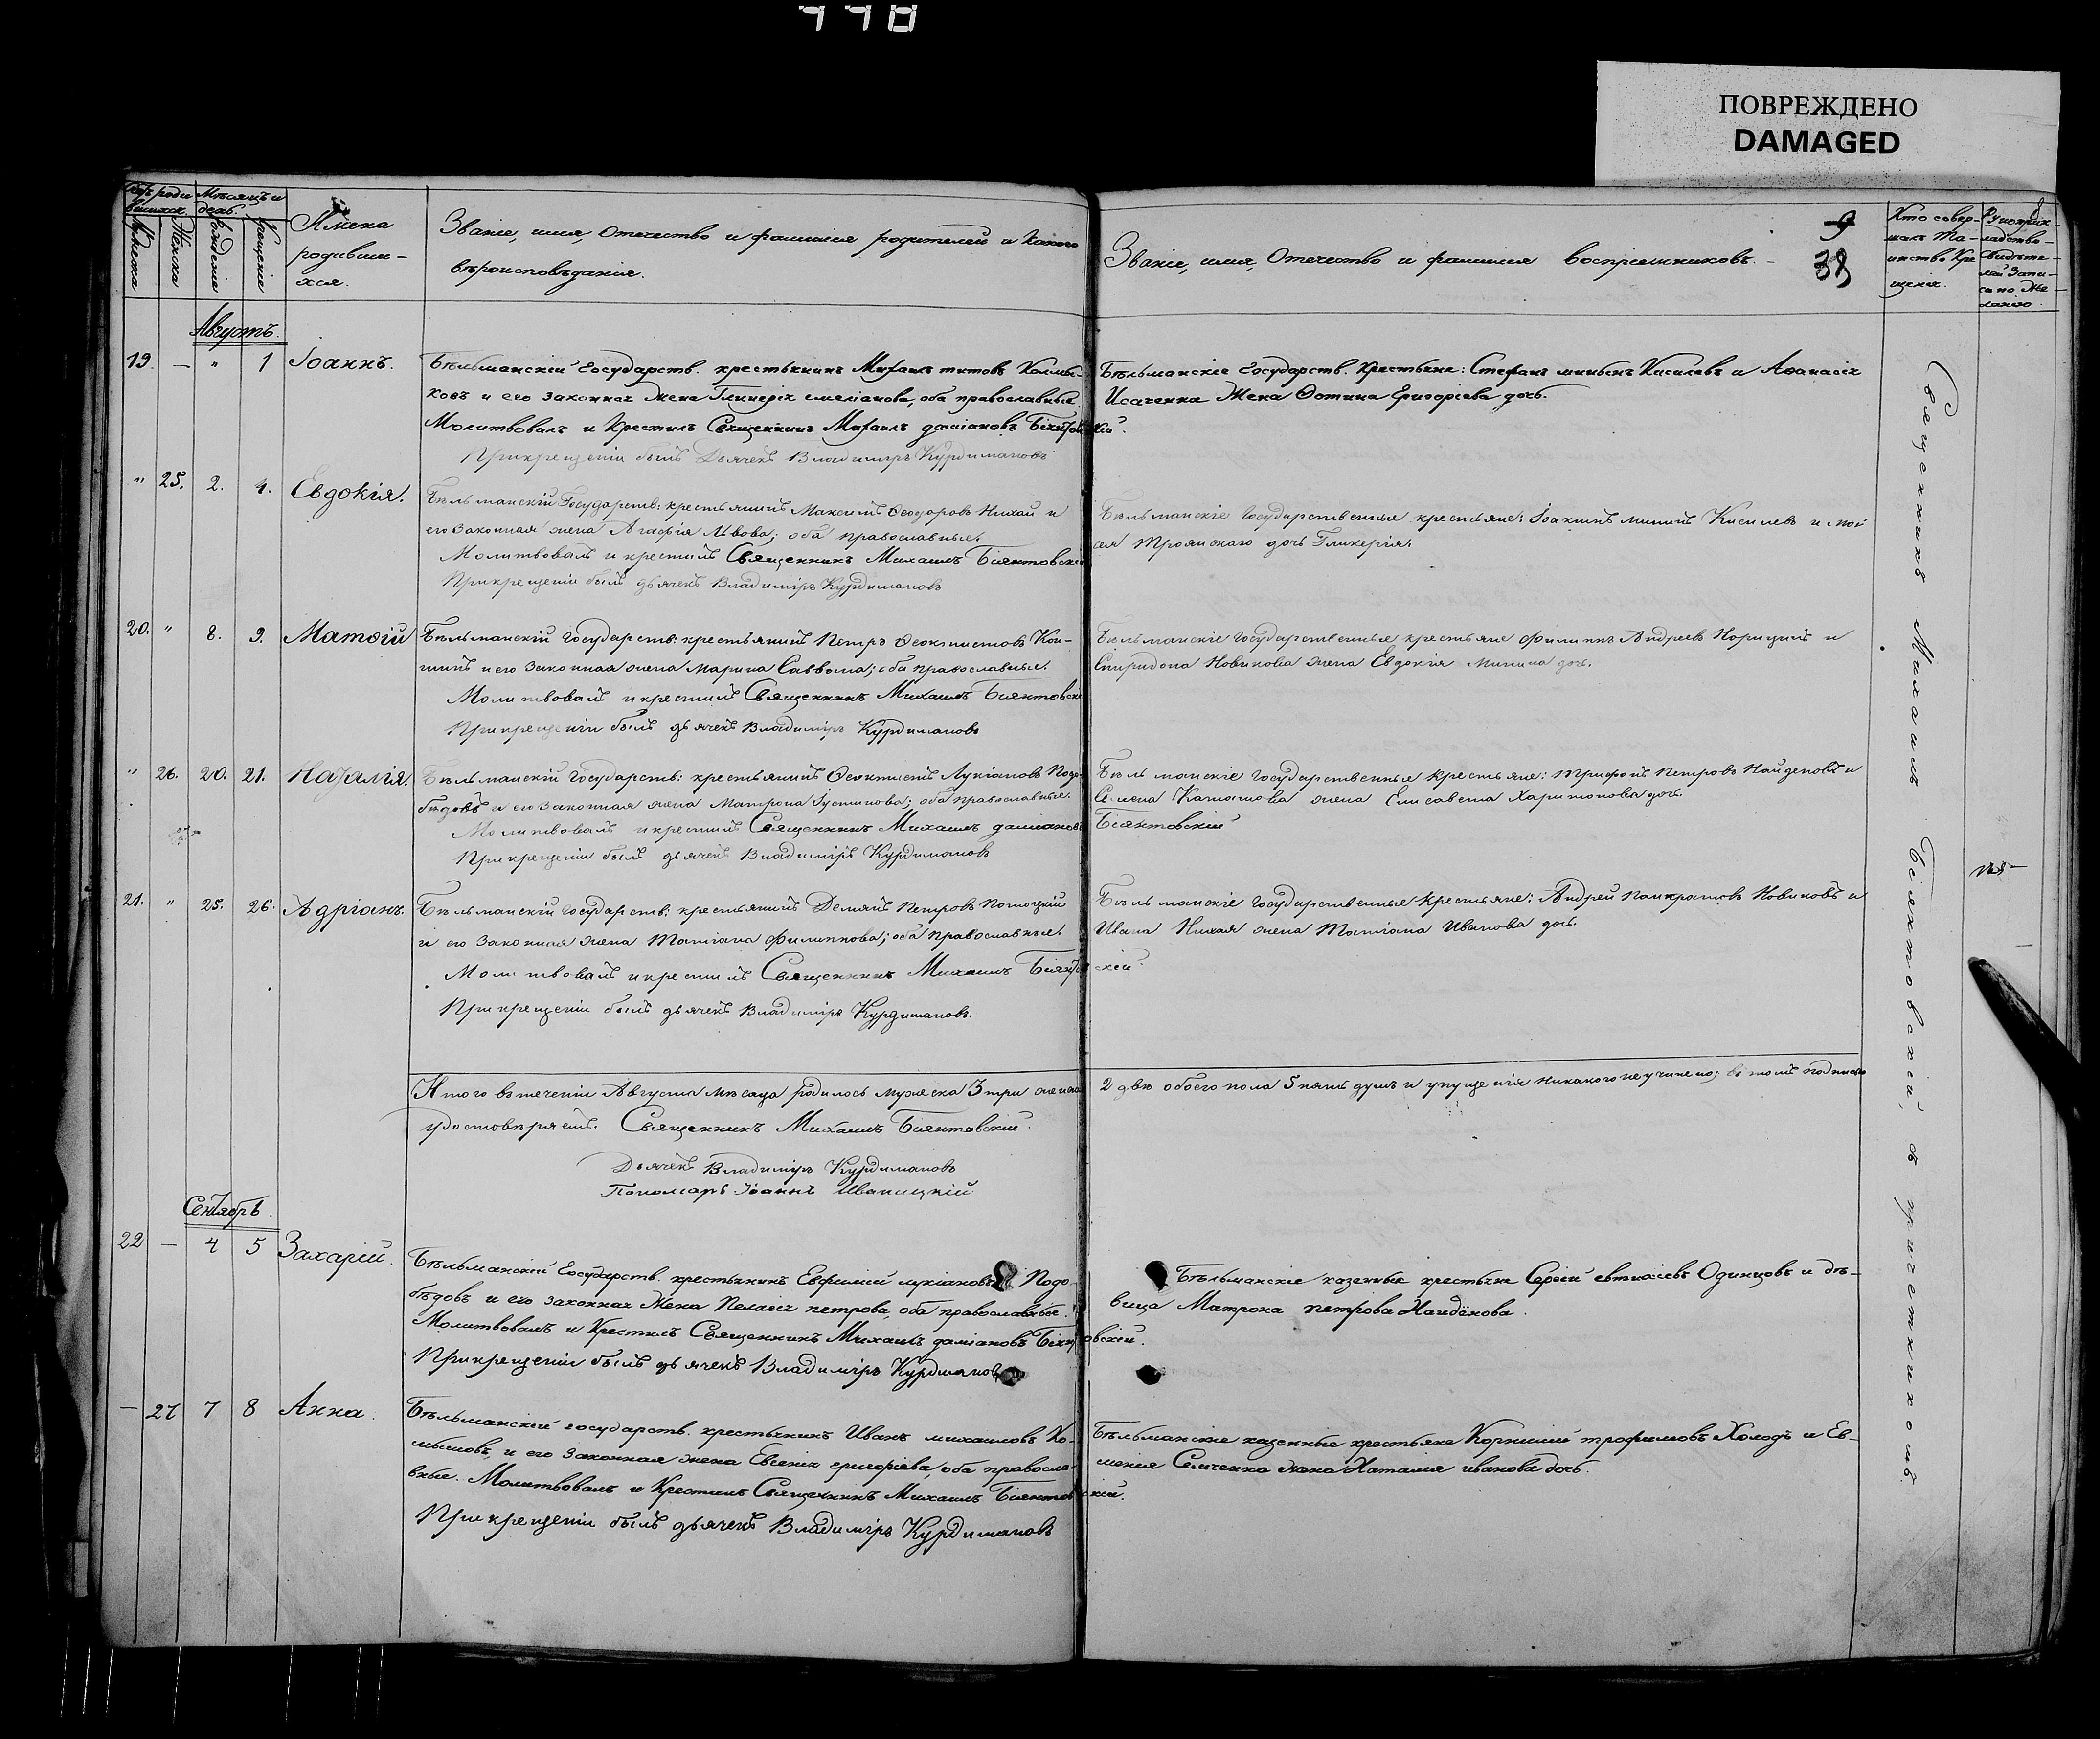 778
ПОВРЕЖДЕНО
DAMAGED
Мѣсяцъ и
день.
Имена
родивши-
хся.
Званіе, имя, Отечество и фамилія родителей и какого
вѣроисповѣданія.
Званіе, имя, Отечество и фамилія воспріемниковъ.
9
39
Кто совер-
шалъ Та-
инство Кре
щенія.
Августъ.
19. — " 1 Іоаннъ.
Бѣльманскій Государств. крестьянинъ Михаилъ титовъ Колмы-
ковъ и его законная Жена Гликерія емеліанова, оба православные.
Молитвовалъ и Крестилъ Священникъ Михаилъ даміановъ Біянтовскій.
При крещеніи былъ Дьячекъ Владиміръ Курдимановъ
Бѣльманскіе Государств. Крестьяне: Стефанъ мининъ Киселевъ и Аѳанасія
Исаченка Жена Фотина Григоріева дочь.
" 25. 2. 4. Евдокія.
Бѣльманскій Государств: крестьянинъ Максимъ Ѳеодоровъ Нихай и
его Законная жена Агафія Львова; оба православные.
Молитвовалъ и крестилъ Священникъ Михаилъ Біянтовскі
При крещеніи былъ дьячекъ Владиміръ Курдимановъ
Бѣльманскіе Государственные крестьяне: Іоакимъ мининъ Киселевъ и Мои
сея Троянскаго дочь Гликерія.
20. " 8. 9. Матѳій
Бѣльманскій Государств: крестьянинъ Петръ Ѳеоктистовъ Кон-
шинъ и его Законная жена Марина Саввина; оба православные.
Молитвовалъ и крестилъ Священникъ Михаилъ Біянтовскі
При крещеніи былъ дьячекъ Владиміръ Курдимановъ
Бѣльманскіе Государственные крестьяне Филиппъ Андреевъ Норицынъ и
Спиридона Новикова жена Евдокія Минина дочь.
" 26. 20. 21. Наталія.
Бѣльманскій Государств: крестьянинъ Ѳеоктистъ Лукіановъ Подо-
бѣдовъ и его Законная жена Матрона Іустинова; оба православные.
Молитвовалъ и крестилъ Священникъ Михаилъ даміановъ
Біянтовскій
При крещеніи былъ дьячекъ Владиміръ Курдимановъ
Бѣльманскіе Государственные Крестьяне: Трифонъ Петровъ Найденовъ и
Семена жена Елисавета Харитонова дочь.
21. " 25. 26. Адріанъ.
Бѣльманскій Государств: крестьянинъ Деміянъ Петровъ Потоцкій
и его Законная жена Татіана Филиппова; оба православные.
Молитвовалъ и крестилъ Священникъ Михаилъ Біянтовскій.
При крещеніи былъ дьячекъ Владиміръ Курдимановъ.
Бѣльманскіе Государственные Крестьяне: Андрей Панкратовъ Новиковъ и
Ивана Нихая жена Татіана Иванова дочь.
Итого въ теченіи Августа мѣсяца родилось мужеска 3 три женска 2 двѣ обоего пола 5 пять душъ и упущенія никакого не учинено; въ томъ подписомъ
удостовѣряетъ. Священникъ Михаилъ Біянтовскій.
Дьячекъ Владиміръ Курдимановъ
Пономарь Іоаннъ Иваницкій
Сентябрь.
22 — 4 5 Захарій.
Бѣльманскій Государств. крестьянинъ Евфимій лукіановъ Подо-
бѣдовъ и его законная Жена Пелагія петрова, оба православные.
Молитвовалъ и Крестилъ Священникъ Михаилъ даміановъ Біянтовскій.
При крещеніи былъ дьячекъ Владиміръ Курдимановъ
Бѣльманскіе казенные крестьяне Сергій евтиѳіевъ Одинцовъ и дѣ-
вица Матрона петрова Найдёнова.
— 27 7 8 Анна.
Бѣльманскій государств. крестьянинъ Иванъ михаиловъ Ко-
мышовъ, и его Законная жена Евгенія григоріева, оба правосла-
вные. Молитвовалъ и Крестилъ Священникъ Михаилъ Біянтовскій.
При крещеніи былъ дьячекъ Владиміръ Курдимановъ
Бѣльманскіе казенные крестьяне Корнилій трофимовъ Холодъ и Ев-
менія Семченка жена Наталія иванова дочь.
Священникъ Михаилъ Біянтовскій, съ причетникомъ.